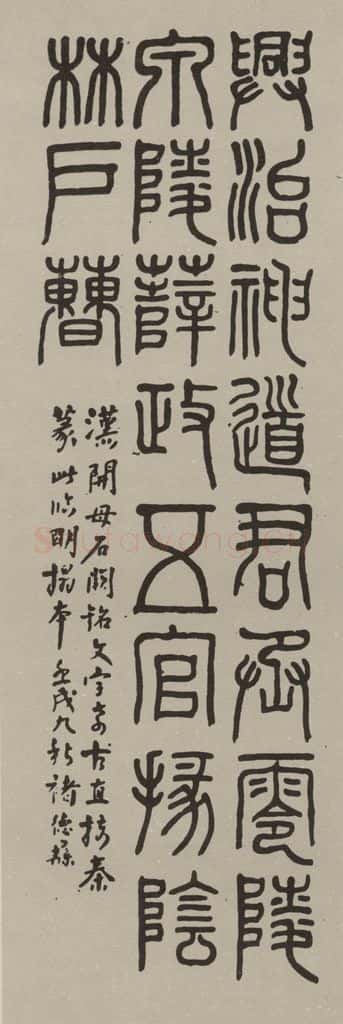 興治神道君丞零陵
泉陵薛政五官掾陰
林戶曹
漢開母石闕銘文字奇古直接秦
篆此臨明搨本壬戌九秋褚德彝
Shufawang.cn